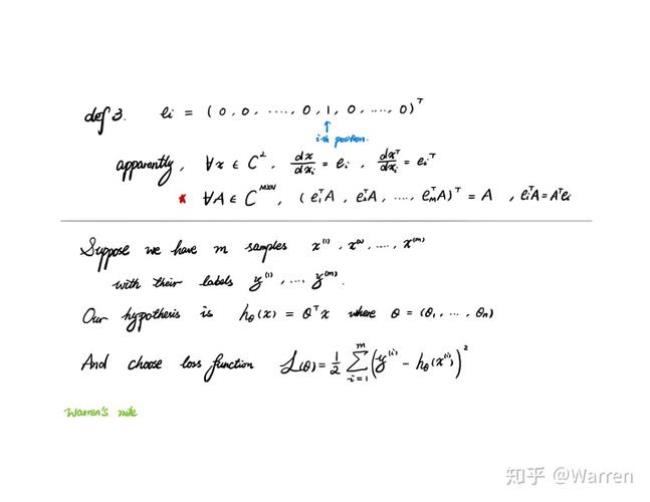 def 3. eᵢ = (0, 0, ....., 0, 1, 0, ...., 0)ᵀ
↑
i-th position.
apparently, ∀x ∈ C², dx/dxᵢ = eᵢ, dxᵀ/dxᵢ = eᵢᵀ
* ∀A ∈ Cᴹˣᴺ, (e₁ᵀA, e₂ᵀA, ...., eₘᵀA)ᵀ = A, eᵢᵀA = Aᵀeᵢ
Suppose we have m samples x⁽¹⁾, x⁽²⁾, ...., x⁽ᵐ⁾
with their labels y⁽¹⁾, .... y⁽ᵐ⁾.
Our hypothesis is h_θ(x) = θᵀx where θ = (θ₁, ..., θₙ)
And choose loss function L(θ) = 1/2 ∑ᵢ₌₁ᵐ (y⁽ⁱ⁾ - h_θ(x⁽ⁱ⁾))²
Warren's note
知乎 @Warren